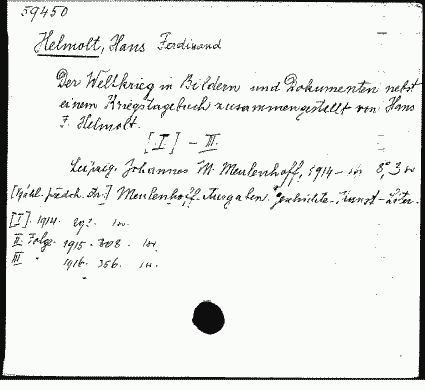 59450
Helmolt, Hans Ferdinand
Der Weltkrieg in Bildern und Dokumenten nebst
einem Kriegstagebuch zusammengestellt von Hans
F. Helmolt.
[I] - III.
Leipzig. Johannes M. Meulenhoff, 1914- 8°, 3
Meulenhoff-Ausgaben. Geschichte-, Kunst-
[I]. 1914.
II. Folge 1915. 308.
III " 1916. 356.